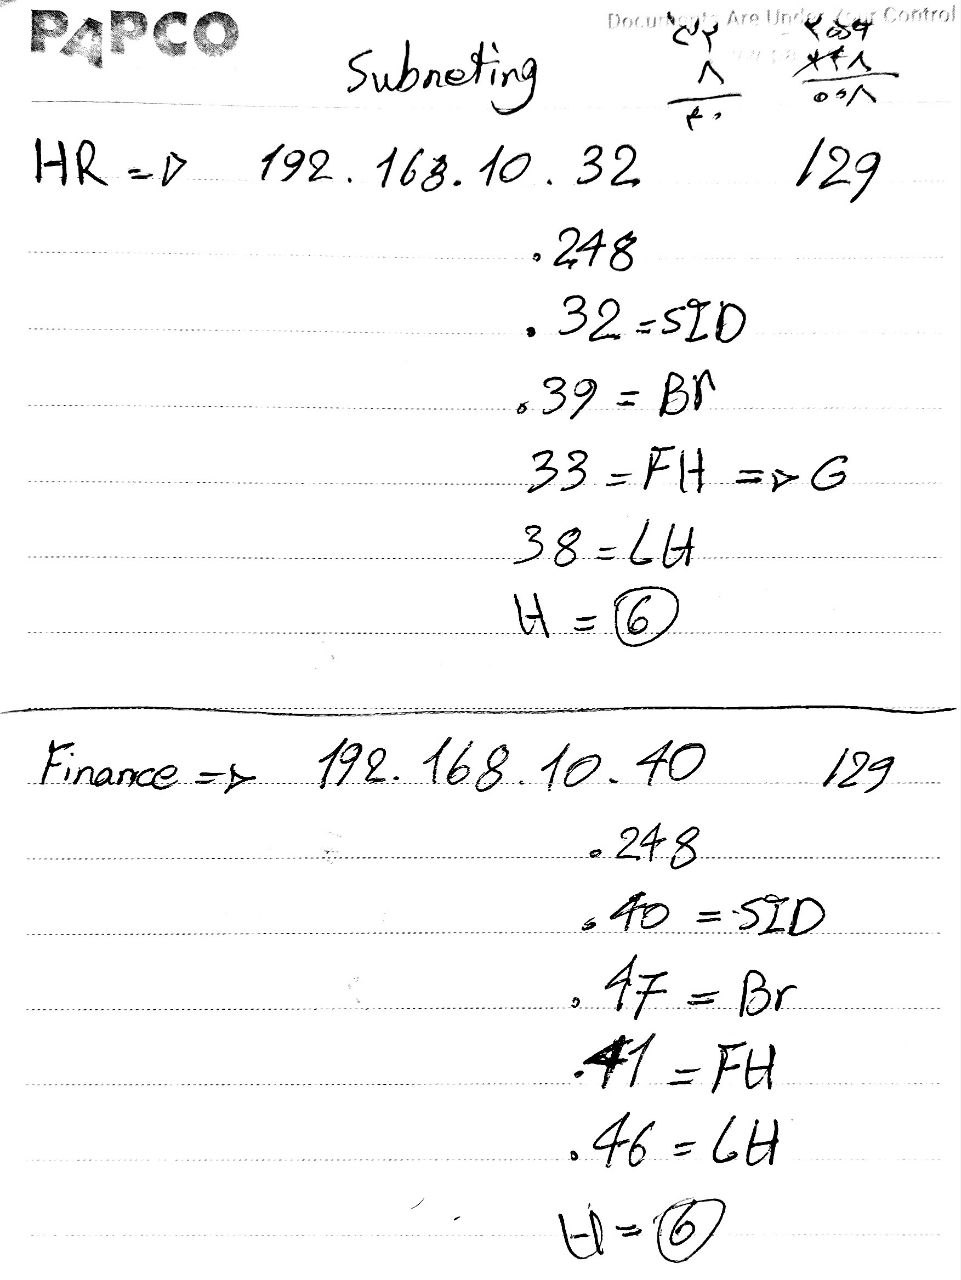 PAPCO
Documents Are Under Your Control
Subneting
۳۲
۸
۴۰
۲۵۶
۲۴۸
۰۰۸
HR => 192.168.10.32 /29
.248
.32 = SID
.39 = Br
33 = FH => G
38 = LH
H = 6
Finance => 192.168.10.40 /29
.248
.40 = SID
.47 = Br
.41 = FH
.46 = LH
H = 6